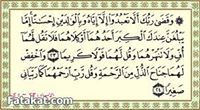 وَقَضَىٰ رَبُّكَ أَلَّا تَعْبُدُوٓا۟ إِلَّآ إِيَّاهُ وَبِٱلْوَٰلِدَيْنِ إِحْسَٰنًا ۚ إِمَّا
يَبْلُغَنَّ عِندَكَ ٱلْكِبَرَ أَحَدُهُمَآ أَوْ كِلَاهُمَا فَلَا تَقُل لَّهُمَآ
أُفٍّ وَلَا تَنْهَرْهُمَا وَقُل لَّهُمَا قَوْلًا كَرِيمًا ٢٣ وَٱخْفِضْ
لَهُمَا جَنَاحَ ٱلذُّلِّ مِنَ ٱلرَّحْمَةِ وَقُل رَّبِّ ٱرْحَمْهُمَا كَمَا رَبَّيَانِى
صَغِيرًا ٢٤
Fatakat.com